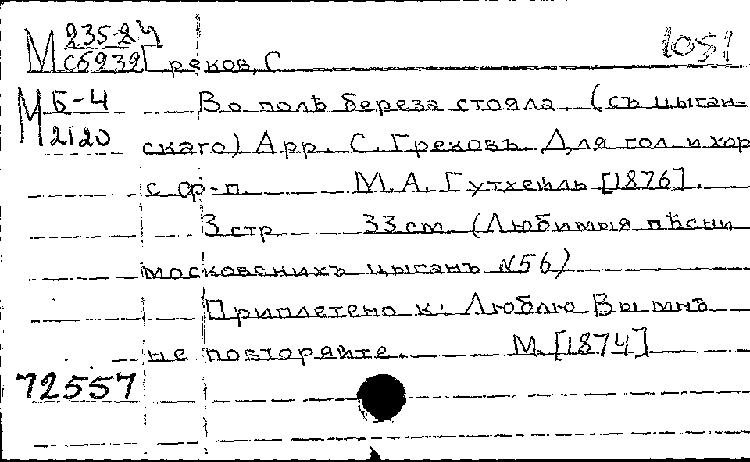 1051
М 235-24
С6939
Греков, С
М Б-4
2120
Во полѣ береза стояла. (съ цыган-
скаго) Арр. С. Грековъ. Для гол и хор
с ф-п. М. А. Гутхейль [1876].
3 стр 33 cm. (Любимыя пѣсни
московскихъ цыганъ №56)
Приплетено к: Люблю Вы мнѣ
не повторяйте. М. [1874]
72557